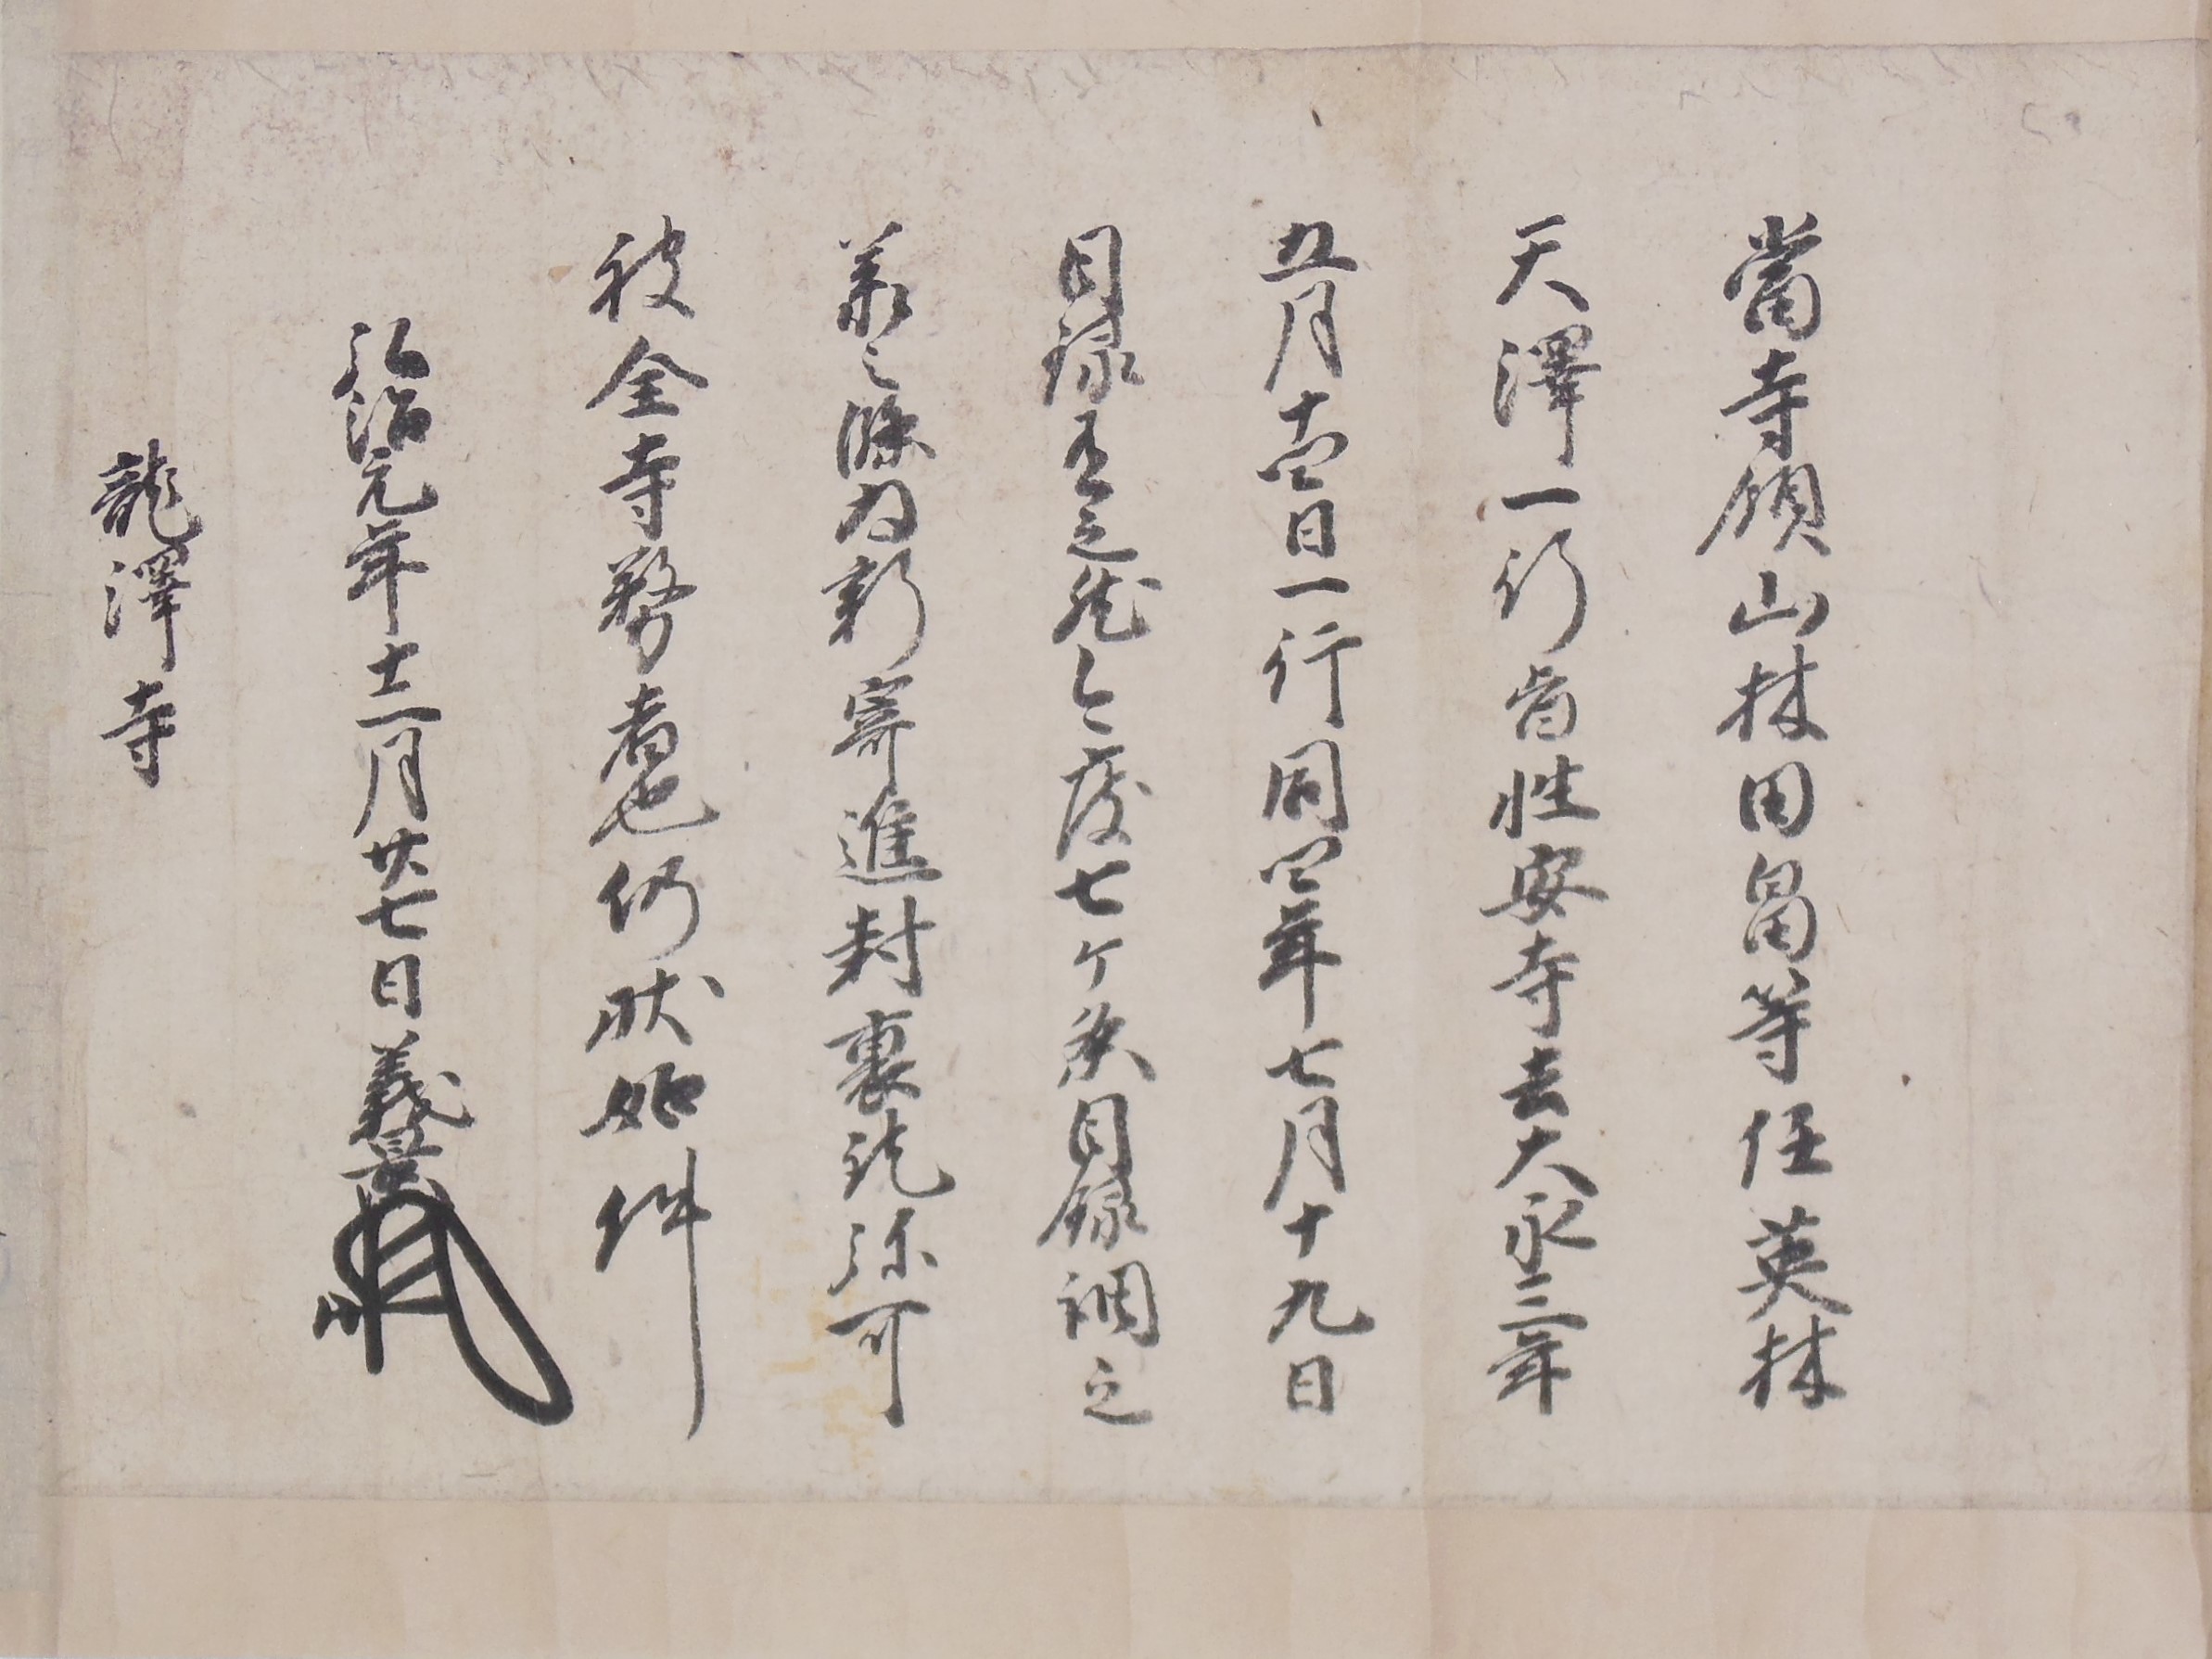 當寺領山林田畠等任英林
天澤一行旨性安寺去大永三年
五月十四日一行同四年七月十九日
目録有之然今度七ケ条目録調之
之條為新寄進封裏訖弥可
被全寺務者也仍状如件
弘治元年十二月廿七日義景
龍澤寺